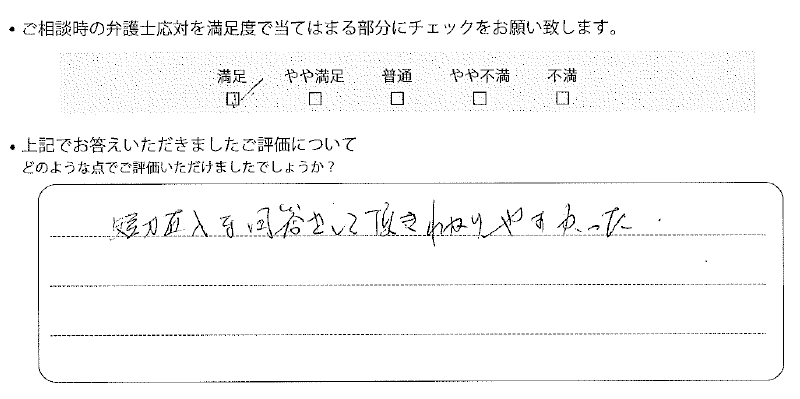 • ご相談時の弁護士応対を満足度で当てはまる部分にチェックをお願い致します。
満足 やや満足 普通 やや不満 不満
☑ □ □ □ □
• 上記でお答えいただきましたご評価について
どのような点でご評価いただけましたでしょうか？
短刀直入な回答をして頂きわかりやすかった.